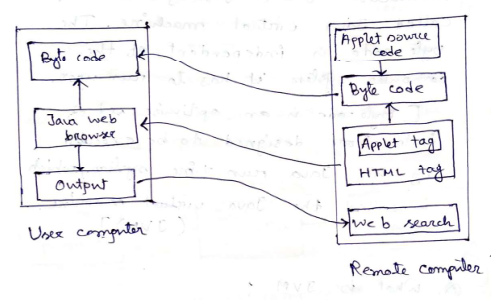 Byte code
Java web
browser
Output
User computer
Applet source
code
Byte code
Applet tag
HTML tag
Web search
Remote computer